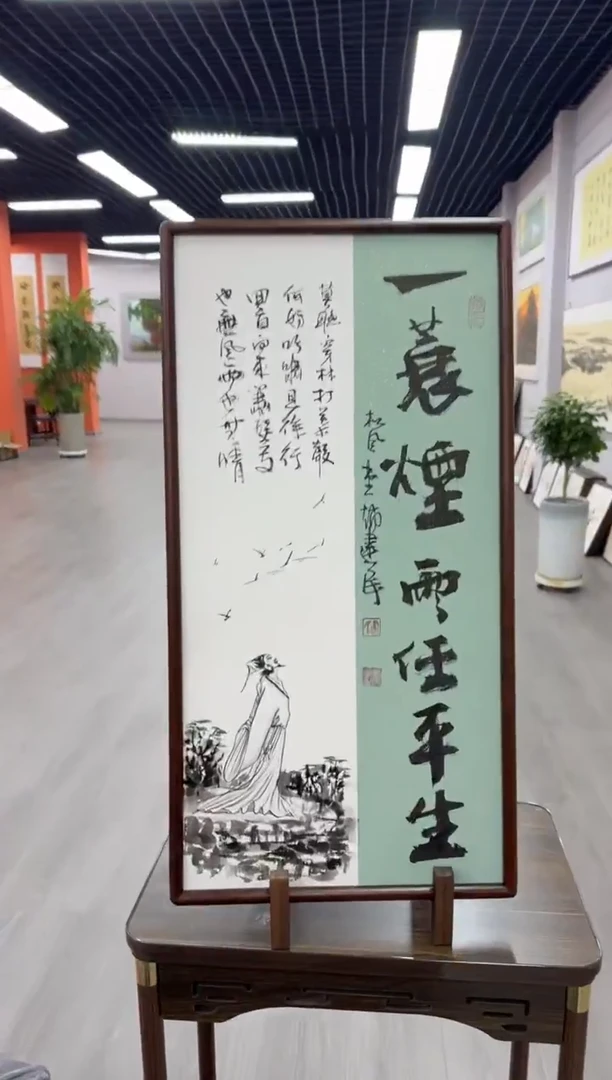 一蓑煙雨任平生
莫聽穿林打葉聲
何妨吟嘯且徐行
回首向來蕭瑟處
也無風雨也無晴